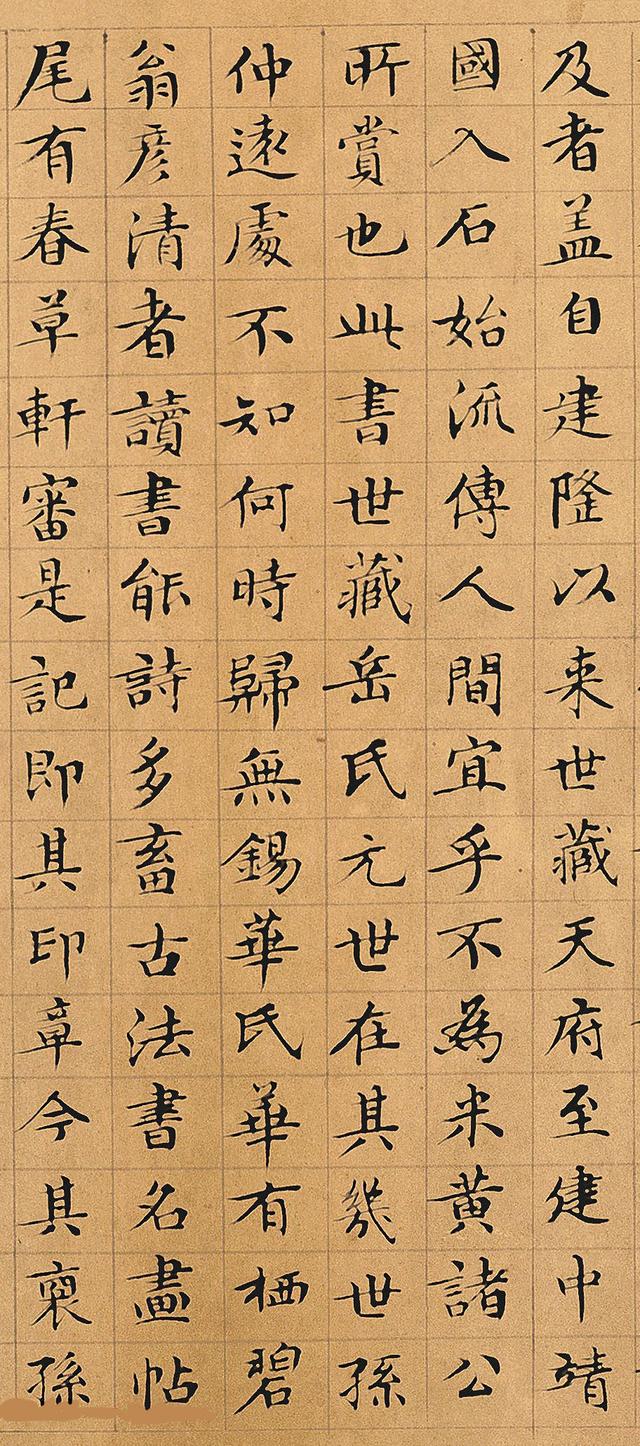 及者盖自建隆以来世藏天府至建中靖
國入石始流傳人間宜乎不為米黄諸公
所賞也此書世藏岳氏元世在其幾世孫
仲遠處不知何時歸無錫華氏華有栖碧
翁彦清者讀書能詩多畜古法書名畫帖
尾有春草軒審是記即其印章今其裔孫